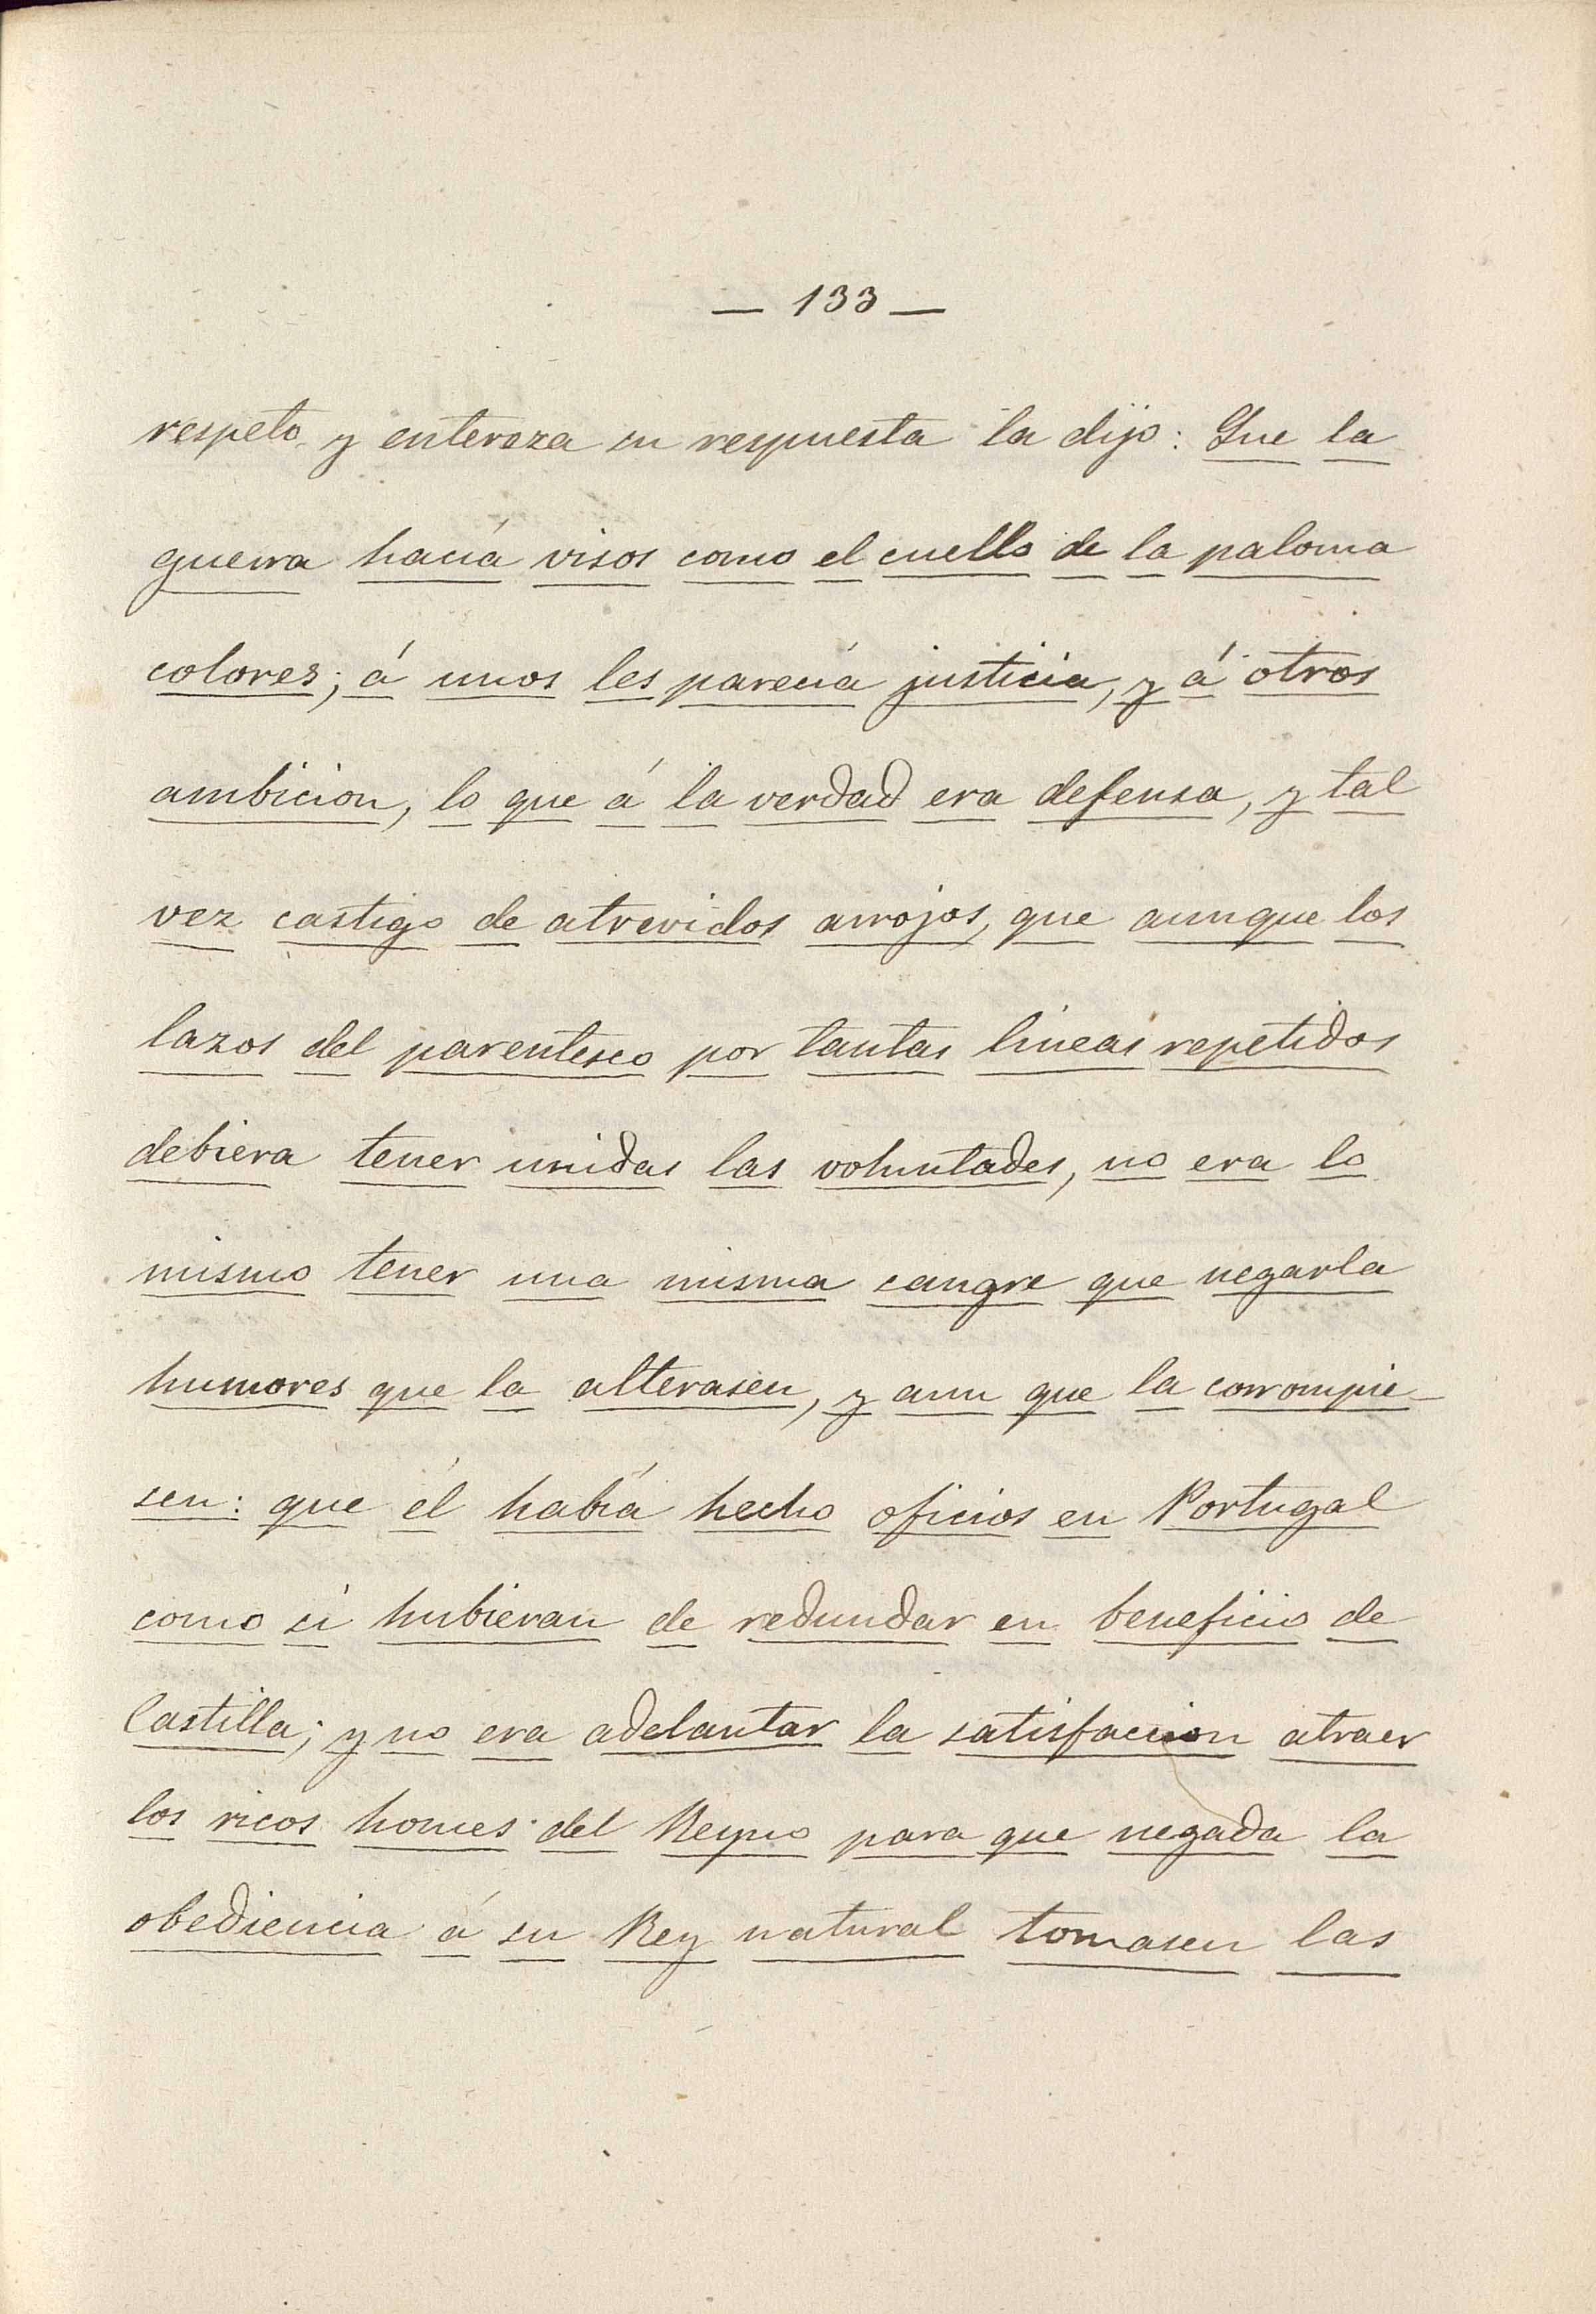 — 133 —
respeto y entereza su respuesta la dijo: Que la
guerra hacía visos como el cuello de la paloma
colores; á unos les parecía justicia, y á otros
ambicion, lo que á la verdad era defensa, y tal
vez castigo de atrevidos arrojos, que aunque los
lazos del parentesco por tantas lineas repetidos
debiera tener unidas las voluntades, no era lo
mismo tener una misma sangre que negarla
humores que la alterasen, y aun que la corrompie-
sen: que él había hecho oficios en Portugal
como si hubieran de redundar en beneficio de
Castilla; y no era adelantar la satisfaccion atraer
los ricos homes del Reyno para que negada la
obediencia á su Rey natural tomasen las